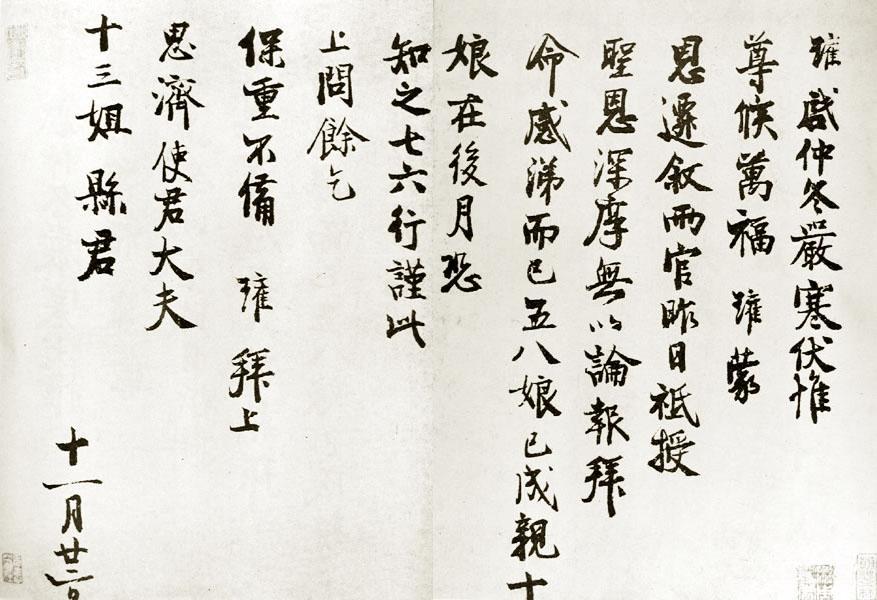 瓘啟仲冬嚴寒伏惟
尊候萬福 瓘蒙
恩遷敘兩官昨日祗授
聖恩深厚無以論報拜
命感涕而已五八娘已成親十
娘在後月恐
知之七六行謹此
上問餘乞
保重不備 瓘 拜上
思濟使君大夫
十三姐縣君
十一月廿二日